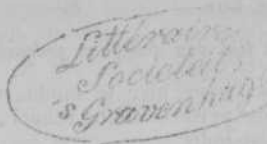 Littéraire
Societeit
's Gravenhag